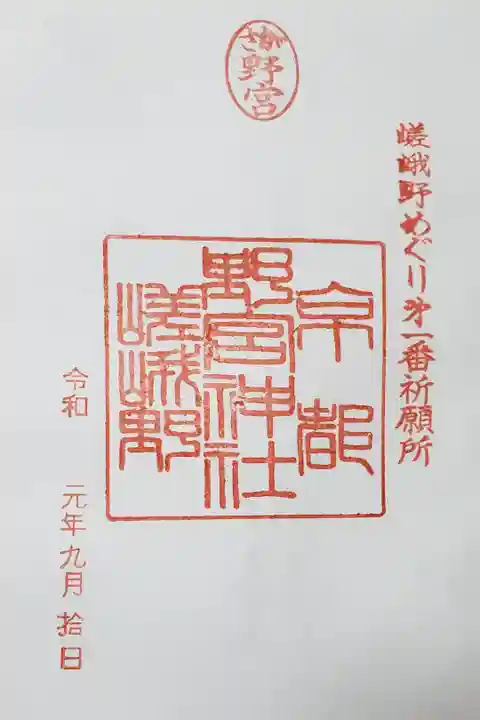 さが
野宮
嵯峨野めぐり第一番祈願所
京都
野宮神社
嵯峨野
令和 元年九月 拾日